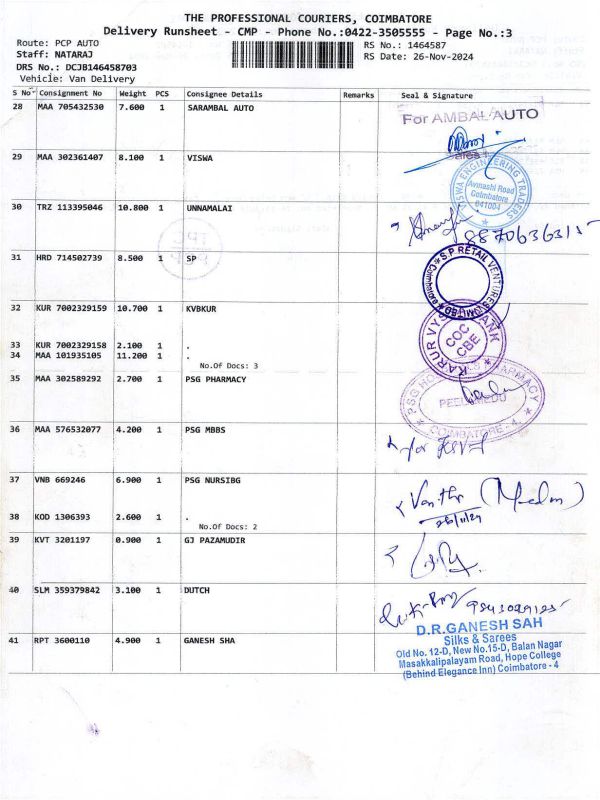 THE PROFESSIONAL COURIERS, COIMBATORE
Delivery Runsheet - CMP - Phone No.:0422-3505555 - Page No.:3
Route: PCP AUTO
RS No.: 1464587
Staff: NATARAJ
RS Date: 26-Nov-2024
DRS No.: DCJB146458703
Vehicle: Van Delivery
S No Consignment No Weight PCS Consignee Details Remarks Seal & Signature
28 MAA 705432530 7.600 1 SARAMBAL AUTO
For AMBAL AUTO
29 MAA 302361407 8.100 1 VISWA
VISWA ENGINEERING TRADERS
Avinashi Road
Coimbatore
641004
30 TRZ 113395046 10.800 1 UNNAMALAI
31 HRD 714502739 8.500 1 SP
S.P RETAIL VENTURES LIMITED
Coimbatore
32 KUR 7002329159 10.700 1 KVBKUR
KARUR VYSYA BANK
COC
CBE
33 KUR 7002329158 2.100 1 .
34 MAA 101935105 11.200 1 .
No.Of Docs: 3
35 MAA 302589292 2.700 1 PSG PHARMACY
PSG HOSPITALS PHARMACY
PEELAMEDU
COIMBATORE - 4.
36 MAA 576532077 4.200 1 PSG MBBS
37 VNB 669246 6.900 1 PSG NURSIBG
26/11/24
38 KOD 1306393 2.600 1 .
No.Of Docs: 2
39 KVT 3201197 0.900 1 GJ PAZAMUDIR
40 SLM 359379842 3.100 1 DUTCH
41 RPT 3600110 4.900 1 GANESH SHA
D.R.GANESH SAH
Silks & Sarees
Old No. 12-D, New No.15-D, Balan Nagar
Masakkalipalayam Road, Hope College
(Behind Elegance Inn) Coimbatore - 4